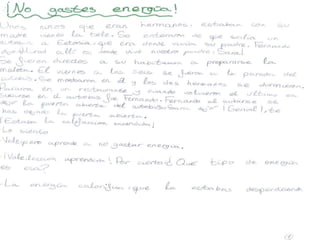 ¡No gastes energía!
Unos niños que eran hermanos, estaban con su
madre viendo la tele. Se enteraron de que salía un
autobús a Estonia, que era donde vivía su padre. Fernando
allí es donde vive nuestro padre! ¡Genial!
Se fueron directos a su habitación a prepararse la
maleta. El viernes a las seis se fueron a la parada del
autobús. Se montaron en él y los dos hermanos se durmieron.
Pararon en un restaurante y cuando volvieron el último en
subirse en el autobús fue Fernando. Fernando al subirse se
dejó la puerta abierta del autobús.
has dejado la puerta abierta.
¡Estaba la calefacción encendida!
- Lo siento
- Vale, pero aprende a no gastar energía.
- ¡Vale! ¡Por cierto! ¿Qué tipo de energía
es esa?
- La energía calorífica, que la estabas desperdiciando
①